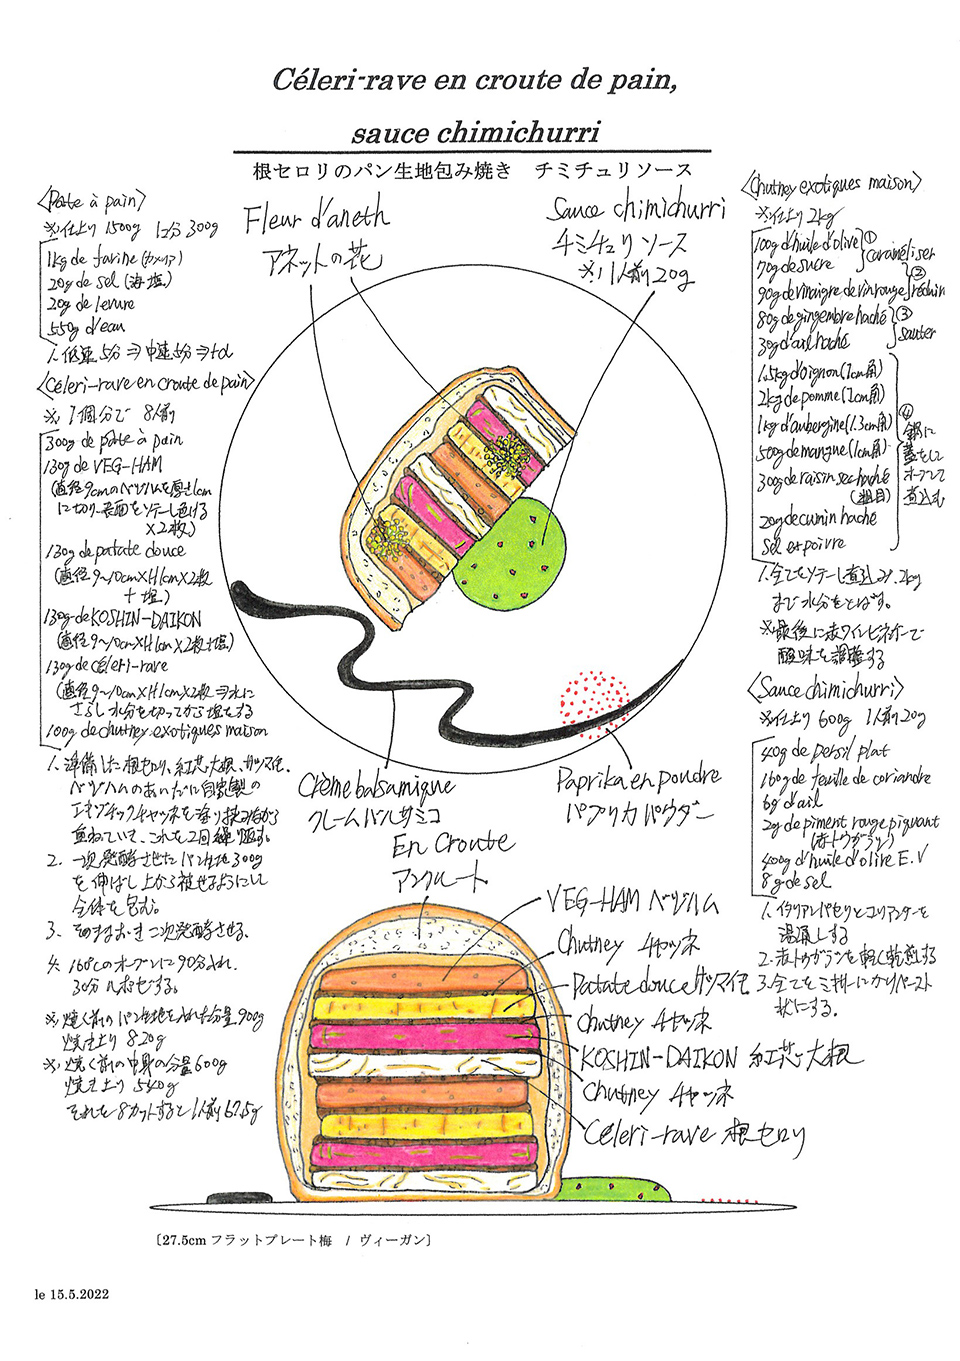 Céleri-rave en croute de pain,
sauce chimichurri
根セロリのパン生地包み焼き　チミチュリソース
<Pâte à pain>
※仕上り 1500g 1台分 300g
1kg de farine (カメリア)
20g de sel (海塩)
20g de levure
550g d'eau
1. 低速5分⇒中速5分⇒td
<Céleri-rave en croute de pain>
※ 1個分で 8人前
300g de pâte à pain
130g de VEG-HAM
(直径9cmのベジハムを厚さ1cm
に切り、表面をソテーし色付ける
×2枚)
130g de patate douce
(直径9~10cm×H1cm×2枚
+塩)
130g de KOSHIN-DAIKON
(直径9~10cm×H1cm×2枚+塩)
130g de céleri-rave
(直径9~10cm×H1cm×2枚⇒水に
さらし水分を切ってから塩をする
100g de chutney exotiques maison
1. 準備した根セロリ、紅芯大根、サツマイモ、
ベジハムのあいだに自家製の
エキゾチックチャツネを塗り挟みながら
重ねていき、これを2回繰り返す。
2. 一次発酵させたパン生地300g
を伸ばし上から被せるようにし
全体を包む。
3. そのままおき二次発酵させる。
4. 160℃のオーブンに90分入れ、
30分ルポゼする。
※焼く前のパン生地を入れた分量900g
焼き上り 820g
※焼く前の中身の分量600g
焼き上り 540g
それを8カットすると1人前67.5g
Fleur d'aneth
アネットの花
Sauce chimichurri
チミチュリソース
※1人前20g
Crème balsamique
クレームバルサミコ
Paprika en poudre
パプリカパウダー
En Croute
アンクルート
VEG-HAM ベジハム
Chutney チャツネ
Patate douce サツマイモ
Chutney チャツネ
KOSHIN-DAIKON 紅芯大根
Chutney チャツネ
Céleri-rave 根セロリ
<Chutney exotiques maison>
※仕上り2kg
100g d'huile d'olive
70g de sucre
① caraméliser
90g de vinaigre de vin rouge
② réduire
80g de gingembre haché
30g d'ail haché
③ sauter
1.5kg d'oignon (1cm角)
2kg de pomme (1cm角)
1kg d'aubergine (1.3cm角)
500g de mangue (1cm角)
300g de raisin sec haché
(粗目)
20g de cumin haché
Sel et poivre
④ 鍋に蓋をしてオーブンで煮込む
1. 全てをソテーし煮込み、2kg
まで水分をとばす。
※最後に赤ワインビネガーで
酸味を調整する
<Sauce chimichurri>
※仕上り 600g 1人前20g
40g de persil plat
160g de feuille de coriandre
6g d'ail
2g de piment rouge piquant
(赤トウガラシ)
400g d'huile d'olive E.V
8g de sel
1. イタリアンパセリとコリアンダーを
湯通しする
2. 赤トウガラシを軽く乾煎する
3. 全てをミキサーにかけペースト
状にする。
〔27.5cm フラットプレート梅　/　ヴィーガン〕
le 15.5.2022